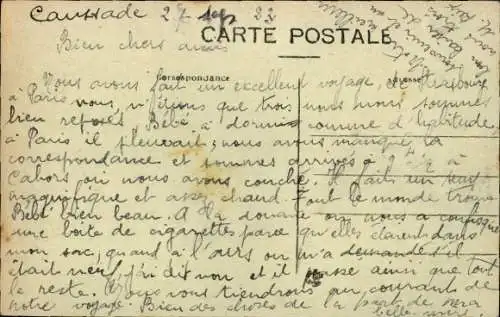 Caussade 27 22
Bien chers amis
CARTE POSTALE
Correspondance
Adresse
Nous avons fait un excellent voyage, de Strasbourg
à Paris nous n'étions que trois nous nous sommes
bien reposés Bébé a dormi comme d'habitude
à Paris il pleuvait, nous avons manqué la
correspondance et sommes arrivés à 9 à
Cahors où nous avons couché. Il fait un
magnifique et assez chaud. Tout le monde trouve
Bébé bien beau. A la douane on nous a confisqué
une boîte de cigarettes parce qu'elles étaient dans
mon sac, quand à l'ours on m'a demandé s'il
était neuf j'ai dit non et il passe ainsi que tout
le reste. Nous vous tiendrons au courant de
notre voyage. Bien des choses de la part de ma
belle-mère.